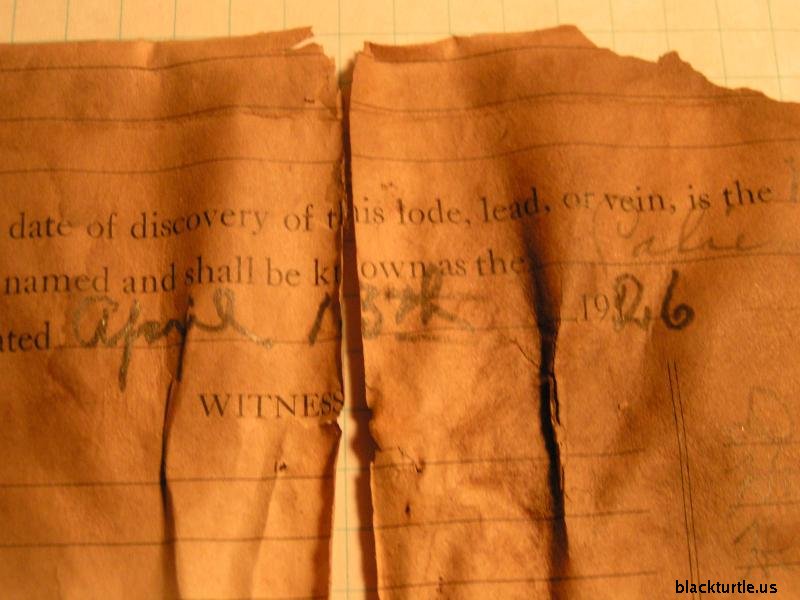 date of discovery of this lode, lead, or vein, is the
named and shall be known as the
ated April 13th 1926
WITNESS
blackturtle.us